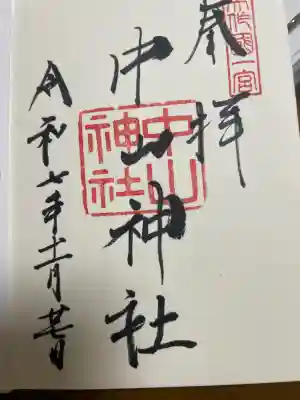 奉拝
美作國一宮
中山神社
中山神社
令和七年十二月廿日